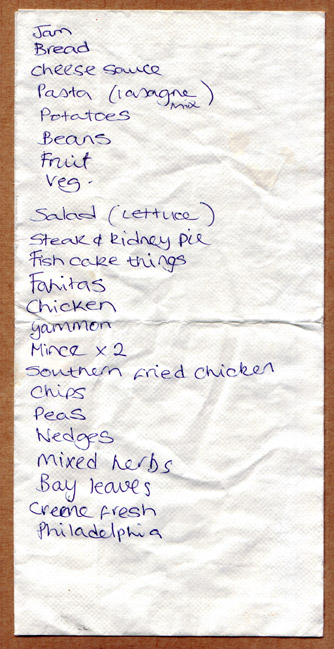 Jam
Bread
cheese sauce
Pasta (lasagne mix)
Potatoes
Beans
Fruit
Veg.
Salad (Lettuce)
Steak & kidney pie
Fish cake things
Fahitas
Chicken
gammon
Mince x 2
Southern fried chicken
Chips
Peas
Wedges
Mixed herbs
Bay leaves
Creme fresh
Philadelphia